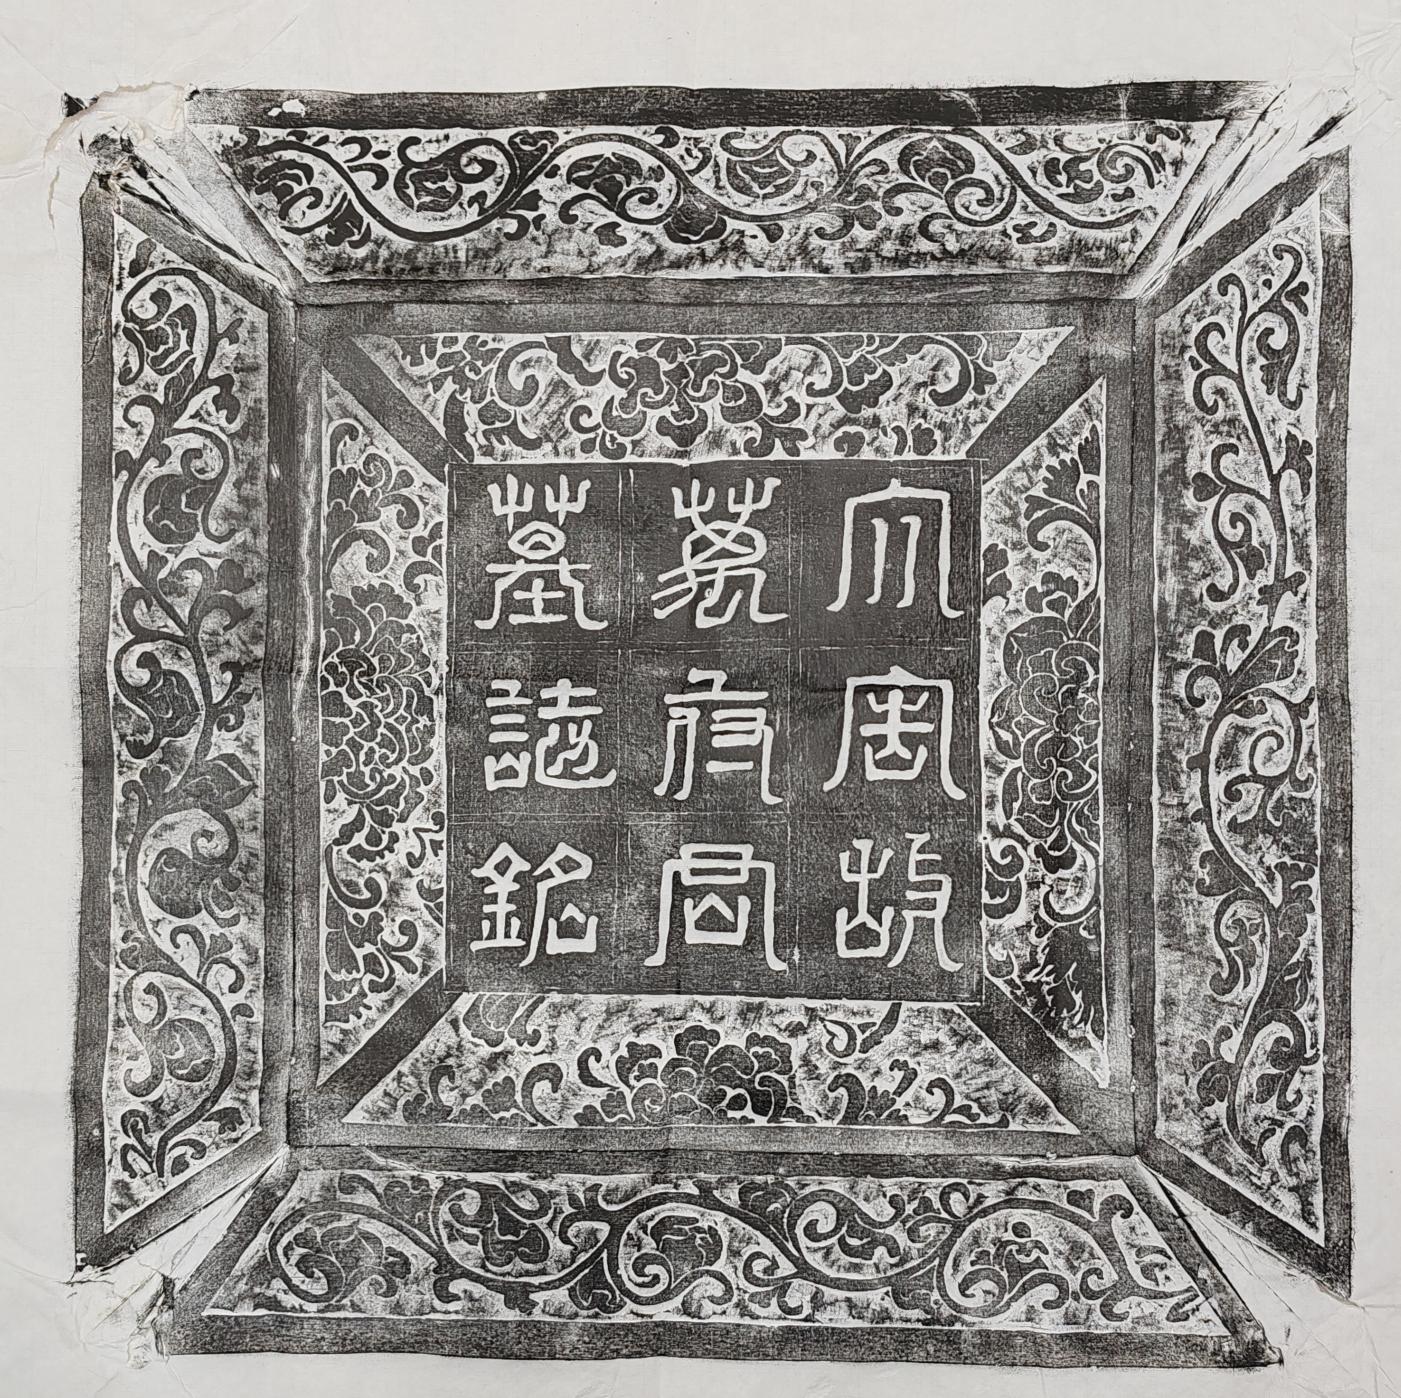 大周故
萬府君
墓誌銘